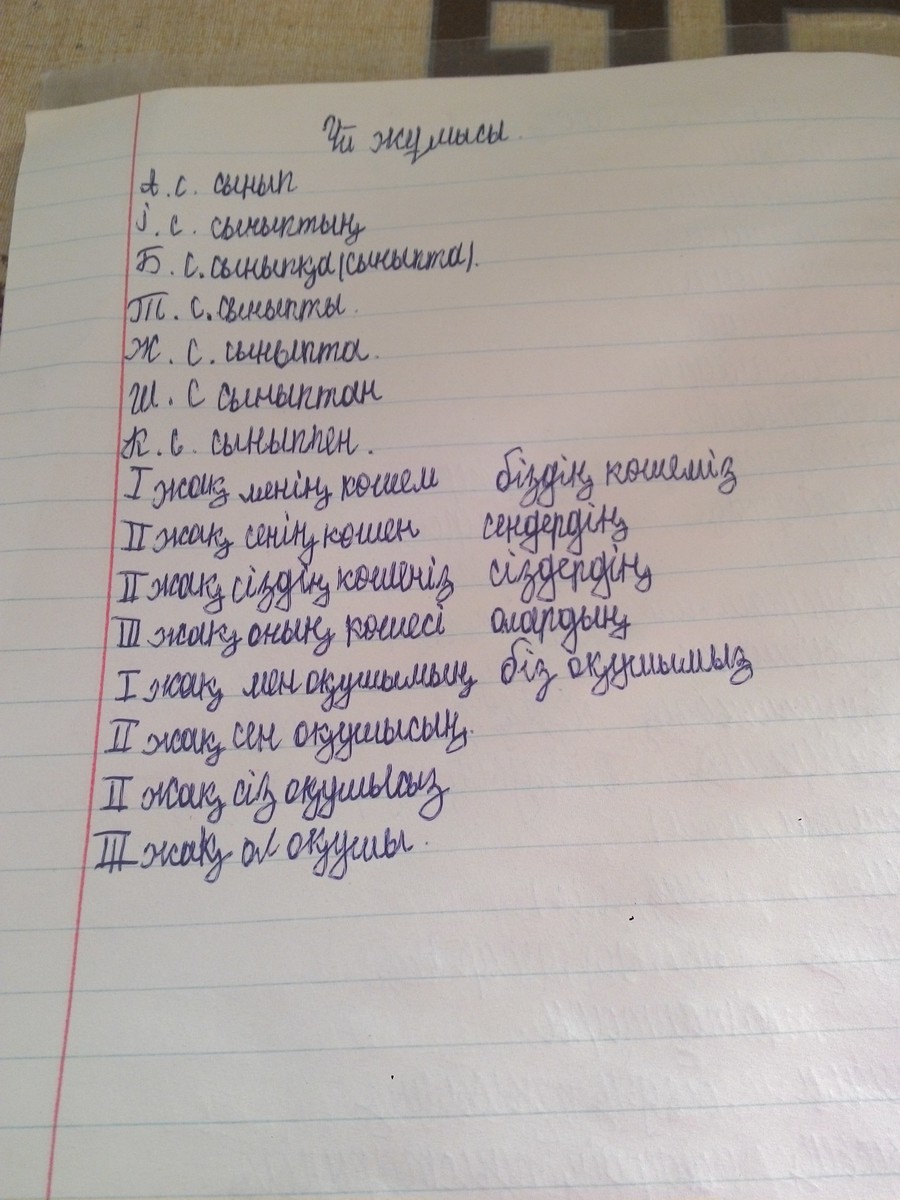 Үй жұмысы.
А.с. сынып
І.с. сыныптың
Б.с. сыныпқа (сыныпта).
Т.с. сыныпты.
Ж.с. сыныпта.
Ш.с сыныптан
К.с. сыныппен.
I жақ менің көшем біздің көшеміз
II жақ сенің көшең сендердің
II жақ сіздің көшеңіз сіздердің
III жақ оның көшесі олардың
I жақ мен оқушымың біз оқушымыз
II жақ сен оқушысың.
II жақ сіз оқушысыз
III жақ ол оқушы.